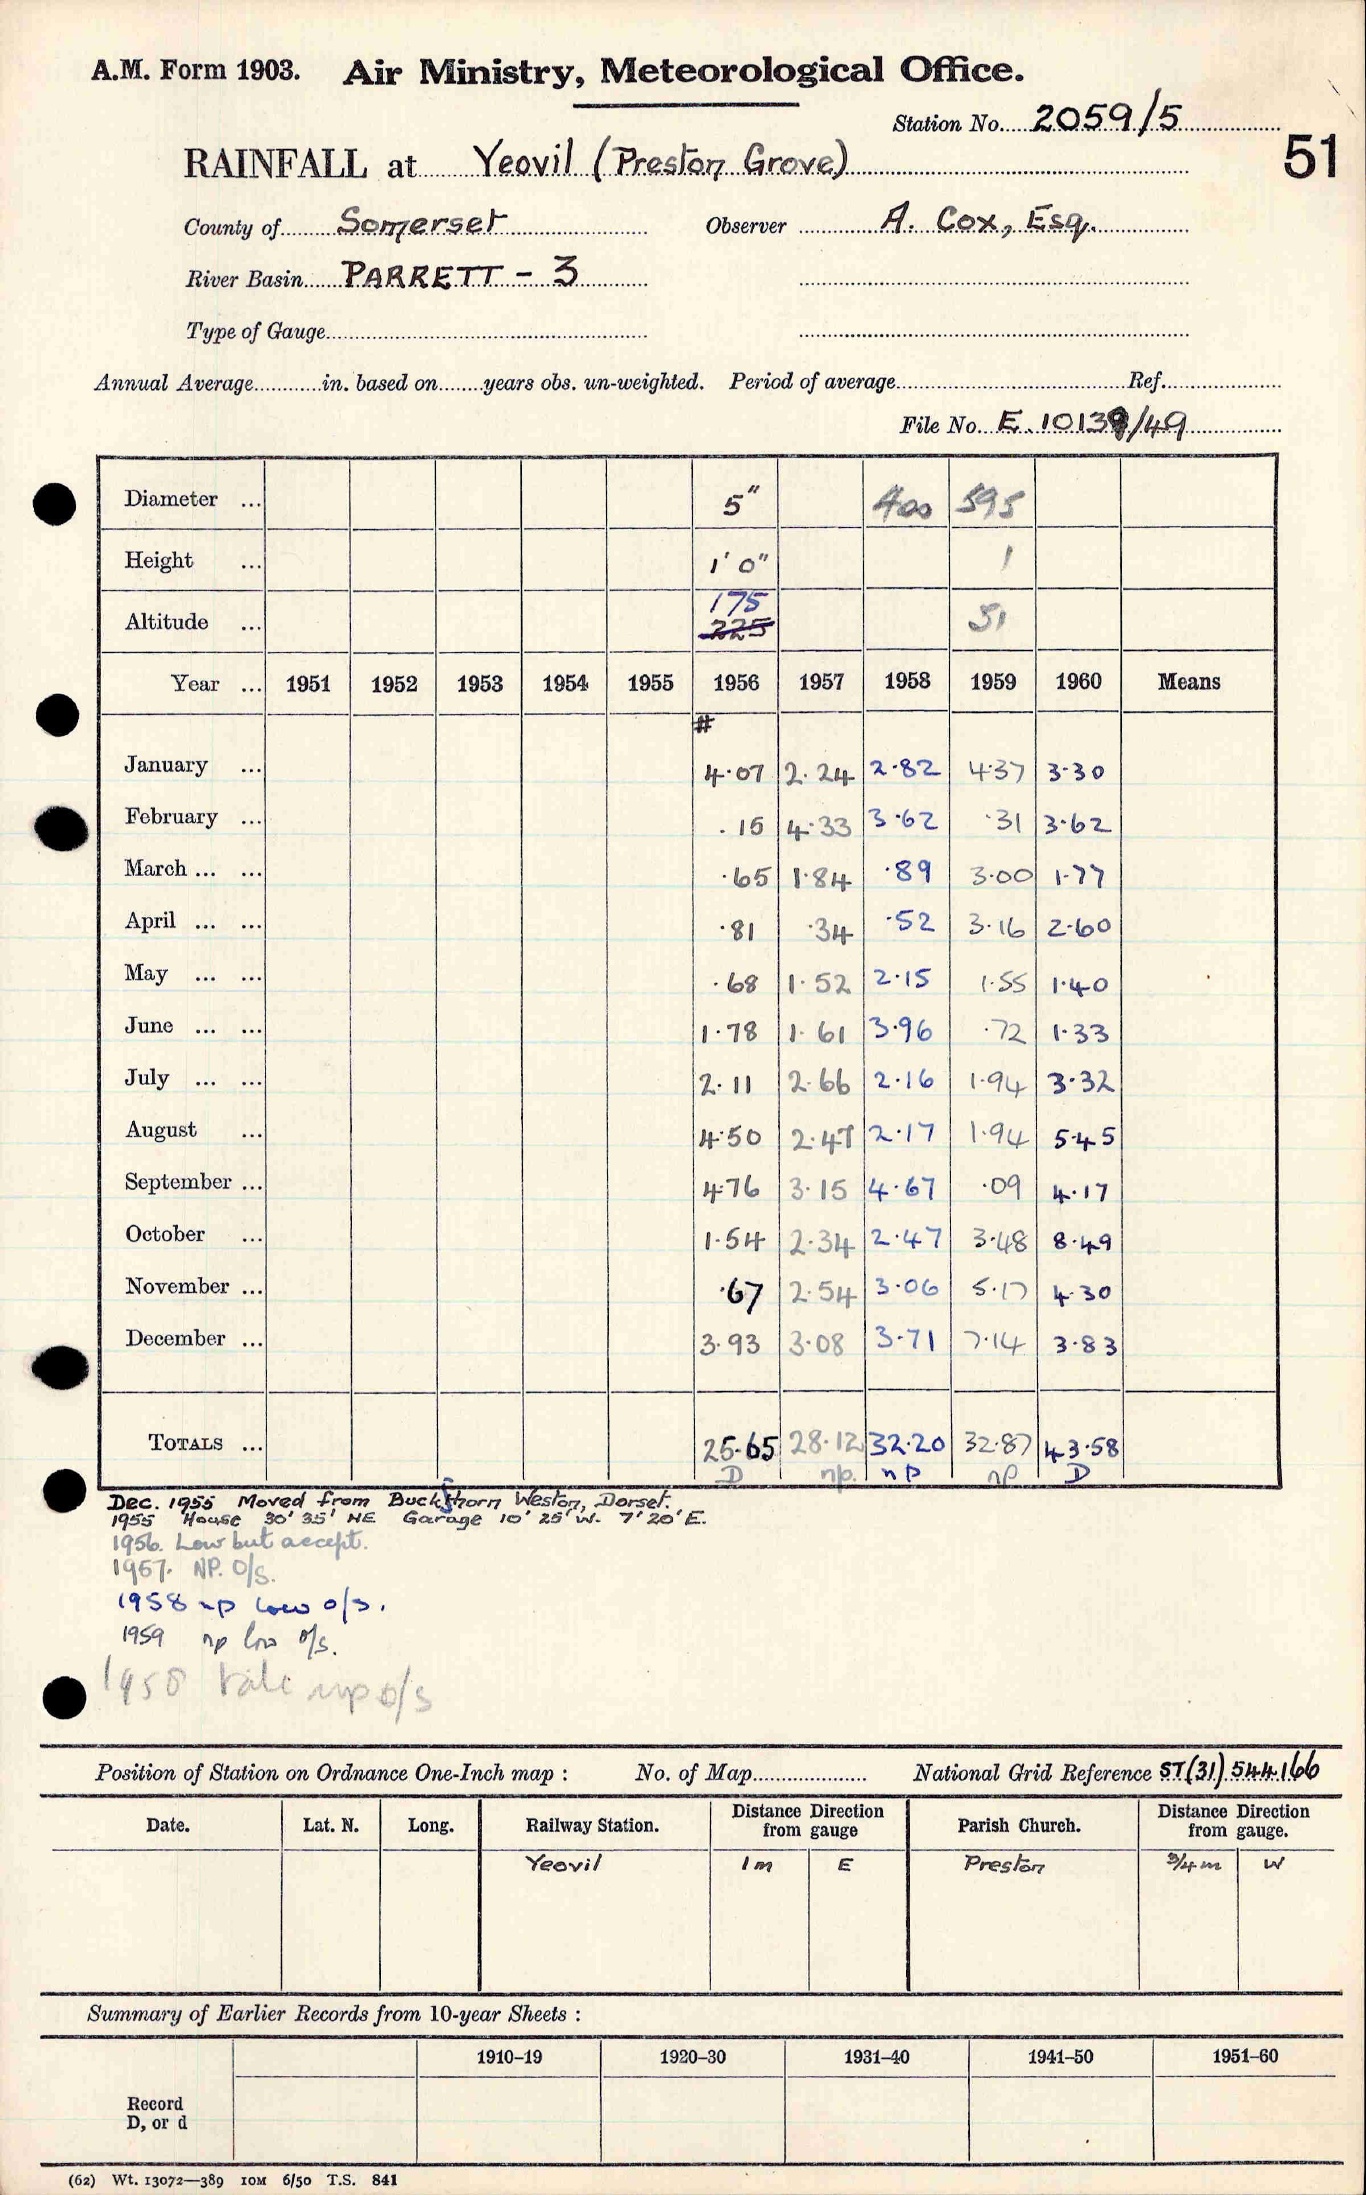 A.M. Form 1903. Air Ministry, Meteorological Office.
Station No. 2059/5
51
RAINFALL at Yeovil (Preston Grove)
County of Somerset Observer A. Cox, Esq.
River Basin PARRETT - 3
Type of Gauge
Annual Average in. based on years obs. un-weighted. Period of average Ref.
File No. E. 10139/49
Diameter ... 5" 400 595
Height ... 1' 0" 1
175
Altitude ... 225 51
Year ... 1951 1952 1953 1954 1955 1956 1957 1958 1959 1960 Means
#
January ... 4·07 2·24 2·82 4·37 3·30
February ... ·15 4·33 3·62 ·31 3·62
March ... ... ·65 1·84 ·89 3·00 1·77
April ... ... ·81 ·34 ·52 3·16 2·60
May ... ... ·68 1·52 2·15 1·55 1·40
June ... ... 1·78 1·61 3·96 ·72 1·33
July ... ... 2·11 2·66 2·16 1·94 3·32
August ... 4·50 2·47 2·17 1·94 5·45
September ... 4·76 3·15 4·67 ·09 4·17
October ... 1·54 2·34 2·47 3·48 8·49
November ... ·67 2·54 3·06 5·17 4·30
December ... 3·93 3·08 3·71 7·14 3·83
TOTALS ... 25·65 28·12 32·20 32·87 43·58
D np. np np D
Dec. 1955 Moved from Buckhorn Weston, Dorset.
1955 House 30' 35' NE Garage 10' 25' W. 7' 20' E.
1956. Low but accept.
1957. NP. O/S.
1958 np Low o/s.
1959 np low o/s.
1958 np o/s
Position of Station on Ordnance One-Inch map : No. of Map National Grid Reference ST(31) 544166
Date. Lat. N. Long. Railway Station. Distance Direction from gauge Parish Church. Distance Direction from gauge.
Yeovil 1 m E Preston 3/4 m W
Summary of Earlier Records from 10-year Sheets :
1910–19 1920–30 1931–40 1941–50 1951–60
Record
D, or d
(62) Wt. 13072—389 10M 6/50 T.S. 841